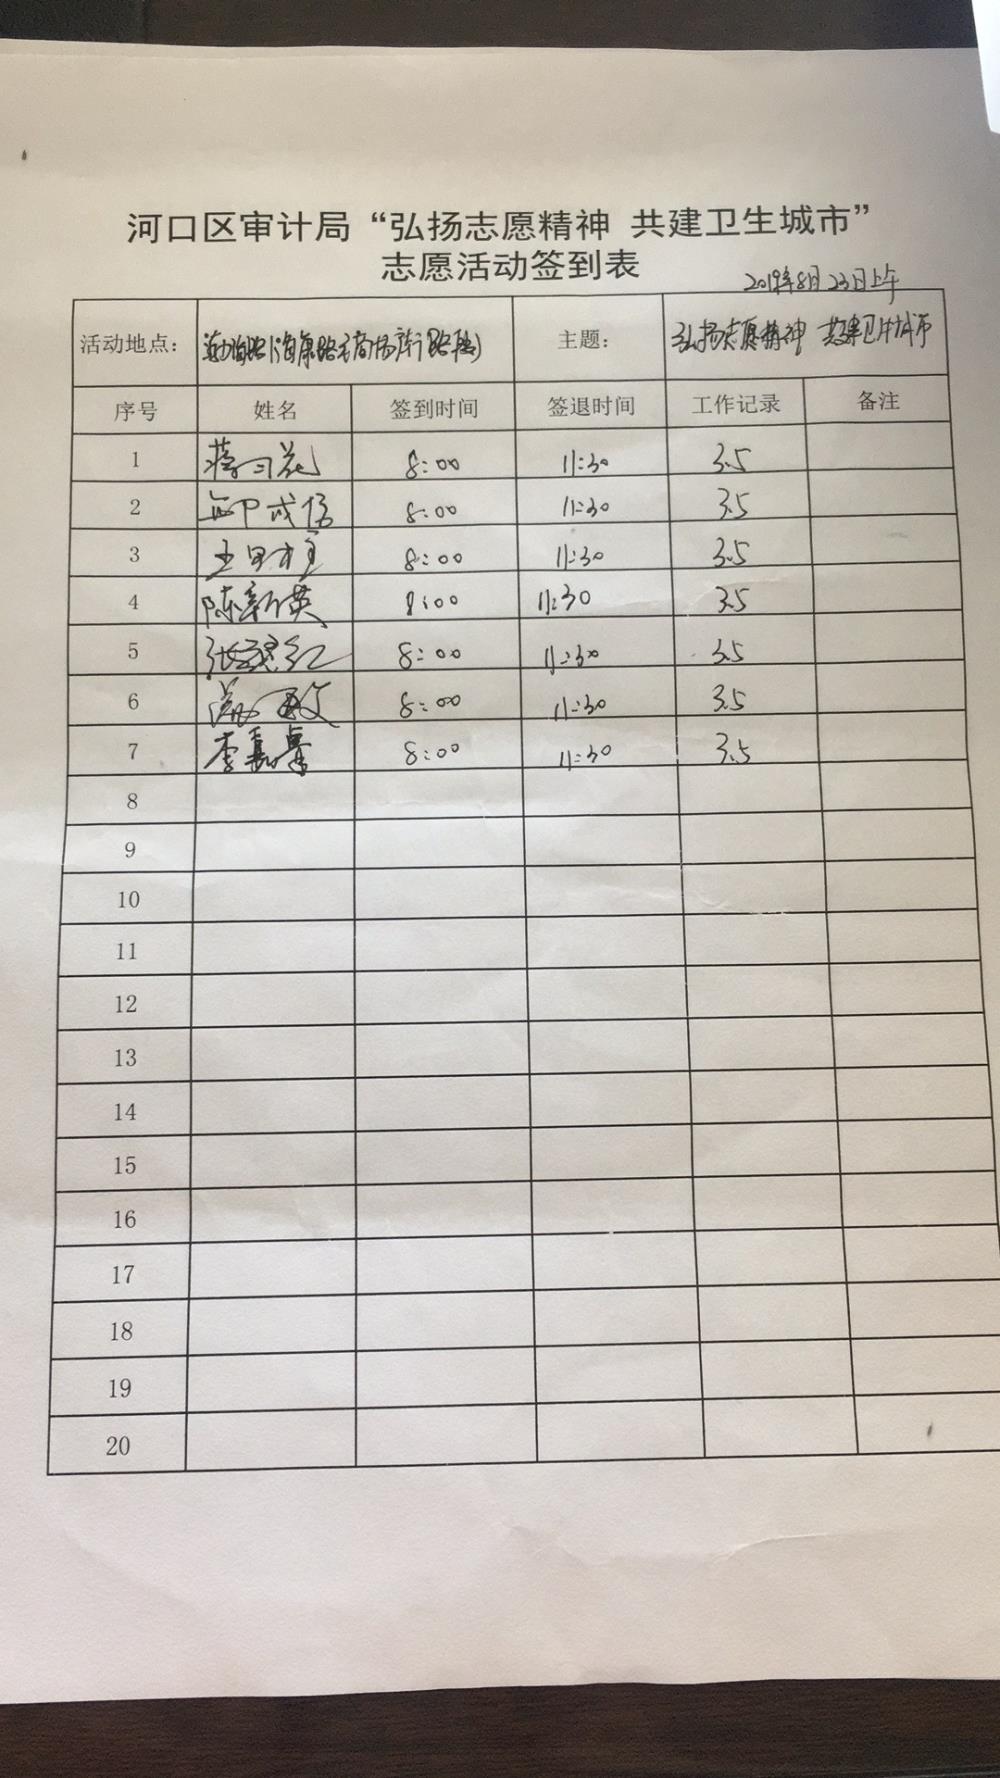 河口区审计局“弘扬志愿精神 共建卫生城市”
志愿活动签到表
2019年8月23日上午
活动地点： 主题： 弘扬志愿精神 共建卫生城市
序号 姓名 签到时间 签退时间 工作记录 备注
1 8:00 11:30 3.5
2 8:00 11:30 3.5
3 8:00 11:30 3.5
4 陈新英 8:00 11:30 3.5
5 8:00 11:30 3.5
6 8:00 11:30 3.5
7 8:00 11:30 3.5
8
9
10
11
12
13
14
15
16
17
18
19
20